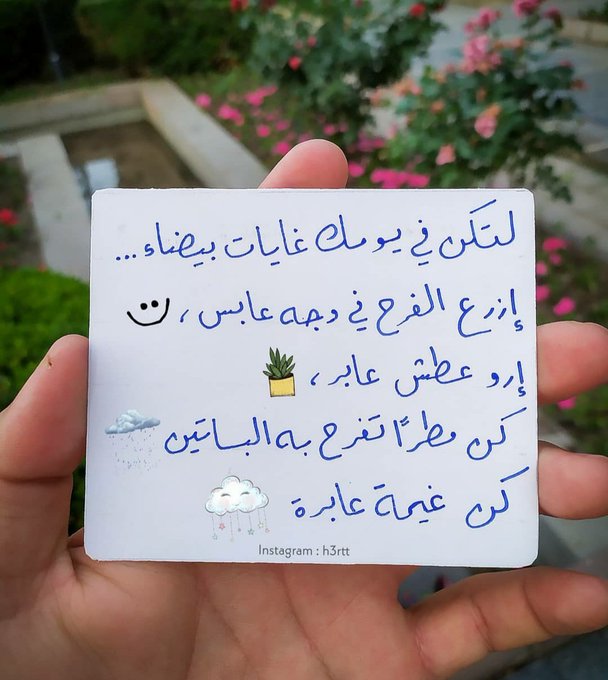 لتكن في يومك غايات بيضاء...
إزرع الفرح في وجه عابس ،
إرو عطش عابر ،
كن مطرًا تفرح به البساتين
كن غيمة عابرة
Instagram : h3rtt